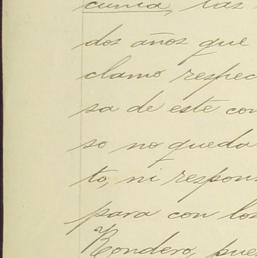 cunia, las
dos años que
clamo respec
sa de este con
so no queda
to, ni respon
para con los
Rondero, pue